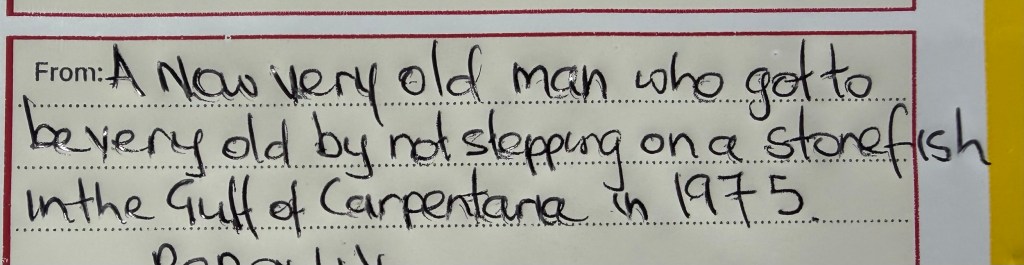 From: A Now very old man who got to
be very old by not stepping on a stonefish
in the Gulf of Carpentaria in 1975.